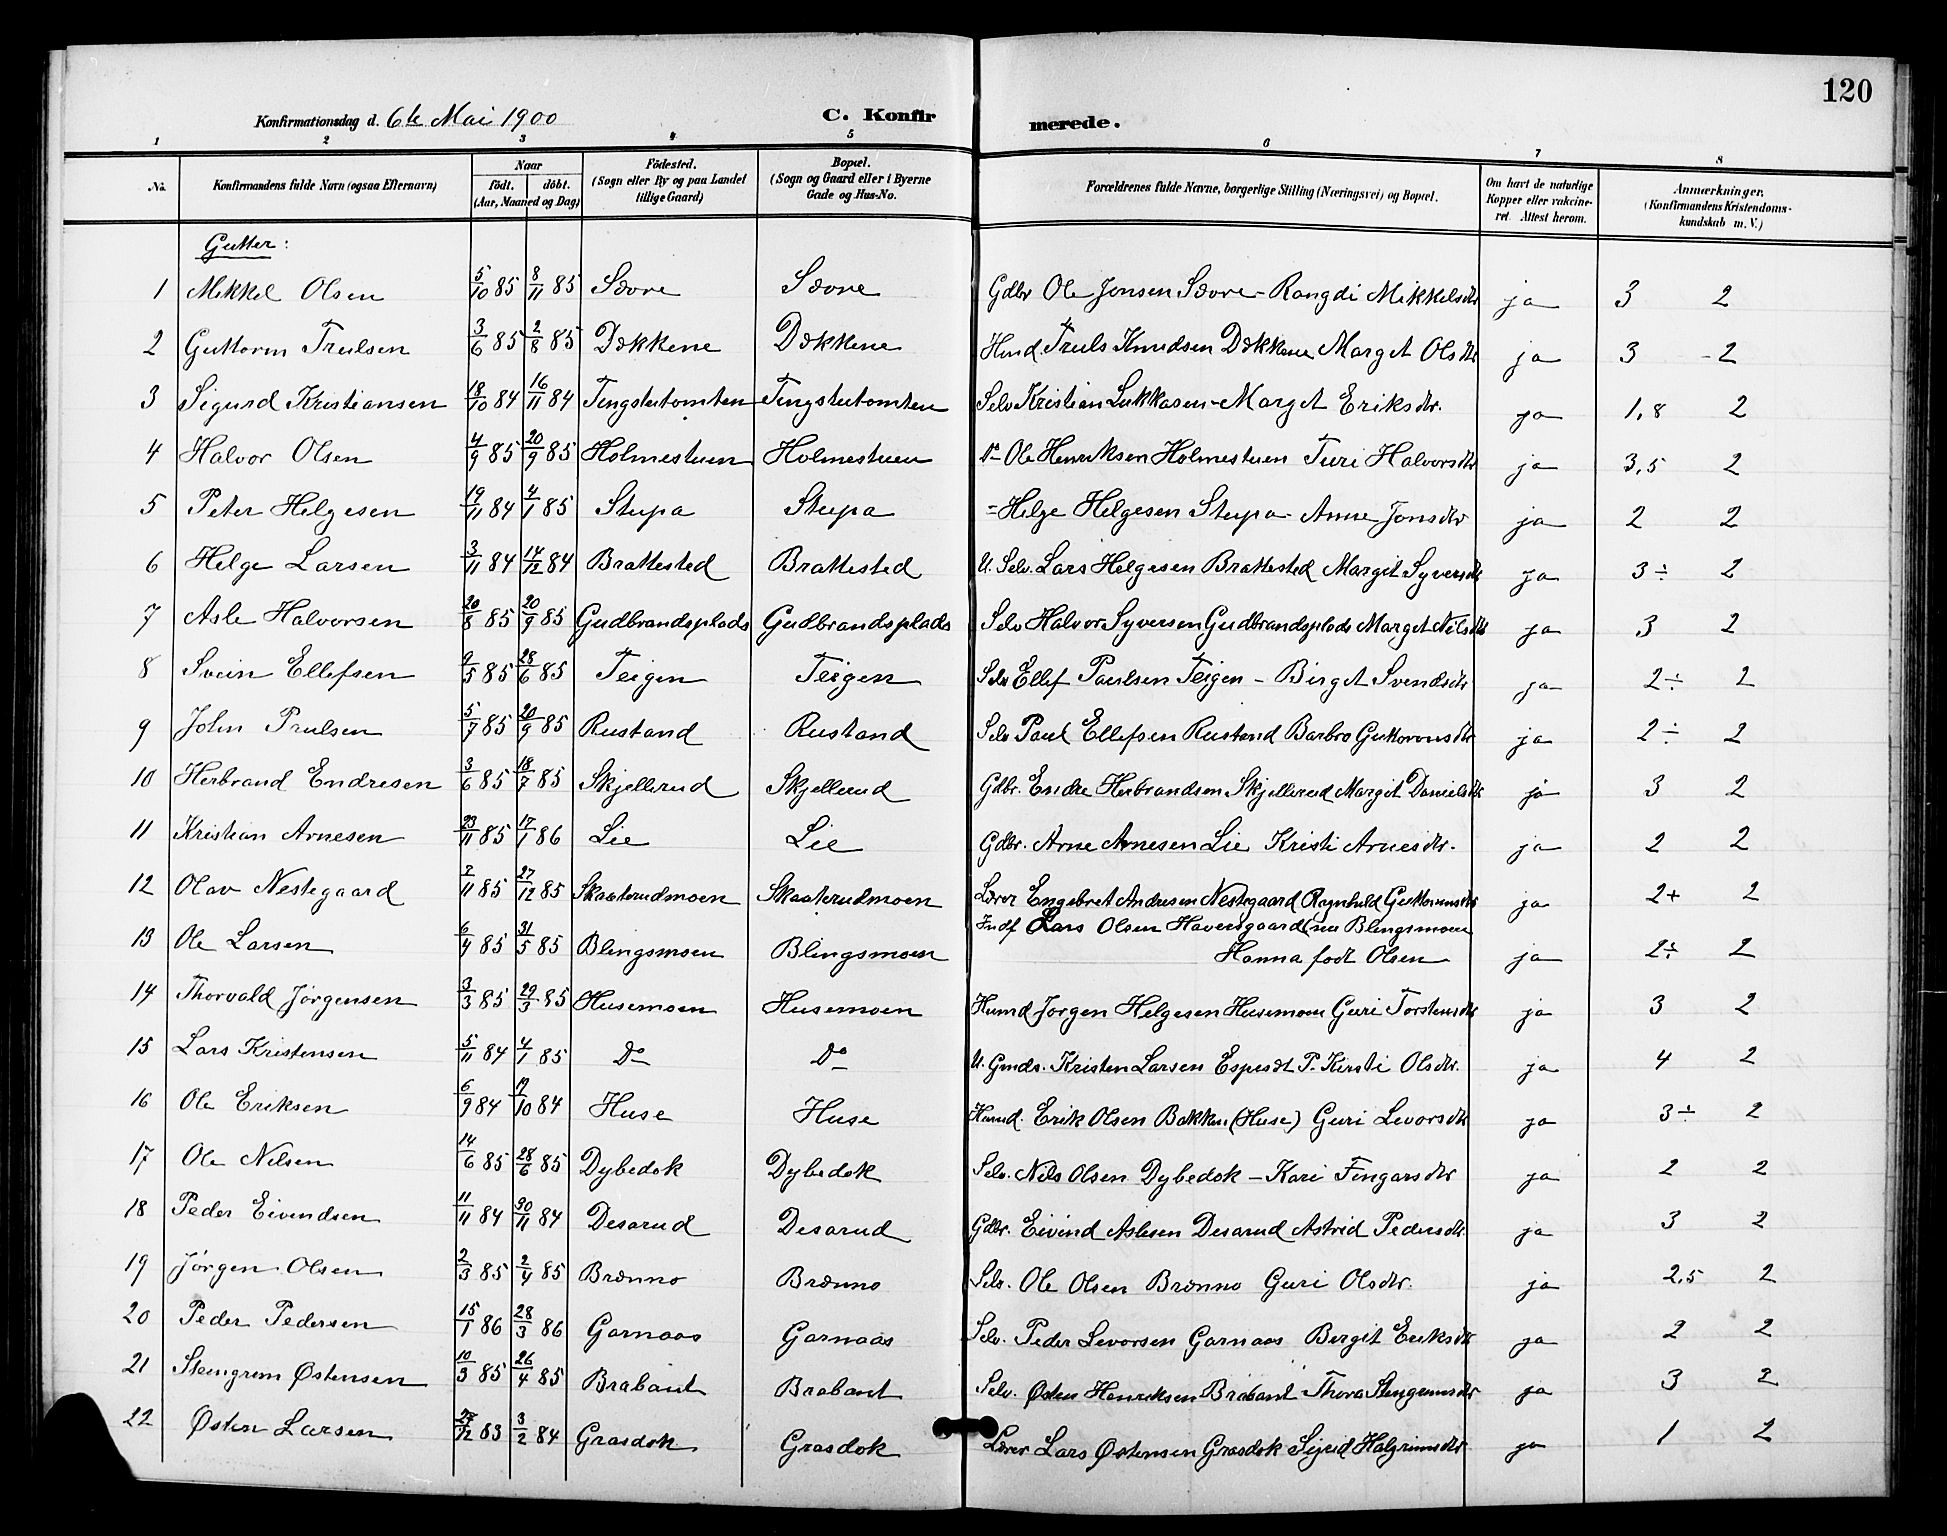 120
Konfirmationsdag d. 6te Mai 1900 C. Konfirmerede.
1 2 3 4 5 6 7 8
No. Konfirmandens fulde Navn (ogsaa Efternavn) Naar födt. döbt. (Aar, Maaned og Dag) Födested. (Sogn eller By og paa Landet tillige Gaard) Bopæl. (Sogn og Gaard eller i Byerne Gade og Hus-No. Forældrenes fulde Navne, borgerlige Stilling (Næringsvei) og Bopæl. Om havt de naturlige Kopper eller vakcineret. Attest herom. Anmærkninger. (Konfirmandens Kristendomskundskab m. V.)
Gutter:
1 Mikkel Olsen 5/10 85 8/11 85 Sævre Sævre Gdbr Ole Jonsen Sævre - Rangdi Mikkelsdtr ja 3 2
2 Guttorm Trulsen 3/6 85 2/8 85 Dækkene Dækkene Husmd Truls Knudsen Dækkene Marget Olsdtr ja 3 - 2
3 Sigurd Kristiansen 18/10 84 16/11 84 Tingstutomten Tingstutomten Selv Kristian Lukkasen - Marget Eriksdtr. ja 1,8 2
4 Halvor Olsen 4/9 85 20/9 85 Holmestuen Holmestuen Do Ole Henriksen Holmestuen Turi Halvorsdtr ja 3,5 2
5 Peter Helgesen 19/11 84 4/1 85 Stupa Stupa = Helge Helgesen Stupa - Anne Jonsdtr ja 2 2
6 Helge Larsen 3/11 84 14/12 84 Brattested Brattested U. Selv. Lars Helgesen Brattested Margit Syversdtr ja 3 ÷ 2
7 Asle Halvorsen 20/8 85 20/9 85 Gudbrandsplads Gudbrandsplads Selv Halvor Syversen Gudbrandsplads Marget Nilsdtr ja 3 2
8 Svein Ellefsen 9/5 85 28/6 85 Teigen Teigen Selv Ellef Paulsen Teigen - Birget Svendsdtr ja 2 ÷ 2
9 John Prulsen 5/7 85 20/9 85 Rustand Rustand Selv Paul Ellefsen Rustand Barbro Guttormsdtr ja 2 ÷ 2
10 Herbrand Endresen 3/6 85 18/7 85 Skjellerud Skjellerud Gdbr. Endre Herbrandsen Skjellerud Margit Danielsdtr ja 3 2
11 Kristian Arnesen 23/11 85 17/1 86 Lie Lie Gdbr. Arne Arnesen Lie Kristi Arnesdtr. ja 2 2
12 Olav Nestegaard 2/11 85 27/12 85 Skaaterudmoen Skaaterudmoen Lærer Engebret Andresen Nestegaard Ragnhild Guttormsdtr ja 2+ 2
13 Ole Larsen 6/4 85 31/5 85 Blingsmoen Blingsmoen Indf Lars Olsen Haversgaard (nu Blingsmoen
Hanna født Olsen ja 2 ÷ 2
14 Thorvald Jørgensen 3/3 85 29/3 85 Husemoen Husemoen Husmd Jørgen Helgesen Husemoen Guri Torstensdtr ja 3 2
15 Lars Kristensen 5/11 84 4/1 85 Do Do U. Gmds. Kristen Larsen Espesdt P. Kirsti Olsdtr. ja 4 2
16 Ole Eriksen 6/9 84 12/10 84 Huse Huse Husmd. Erik Olsen Bakken (Huse) Guri Levorsdtr ja 3 ÷ 2
17 Ole Nilsen 14/6 85 28/6 85 Dybedok Dybedok Selv. Nils Olsen Dybedok - Kari Fingarsdtr ja 2 2
18 Peder Eivendsen 11/11 84 30/11 84 Desarud Desarud Gdbr. Eivind Aslesen Desarud Astrid Pedersdtr. ja 3 2
19 Jørgen Olsen 2/3 85 2/4 85 Brænno Brænno Selv. Ole Olsen Brænno Guri Olsdtr. ja 2,5 2
20 Peder Pedersen 15/1 86 28/3 86 Garnaas Garnaas Selv. Peder Levorsen Garnaas Birgit Eriksdtr ja 2 2
21 Steingrim Østensen 10/3 85 26/4 85 Brabant Brabant Selv. Østen Henriksen Brabant Thora Stengrimsdtr ja 3 2
22 Østen Larsen 27/12 83 3/2 84 Grasdok Grasdok Lærer Lars Østensen Grasdok Sigrid Halgrimsdtr ja 1 2